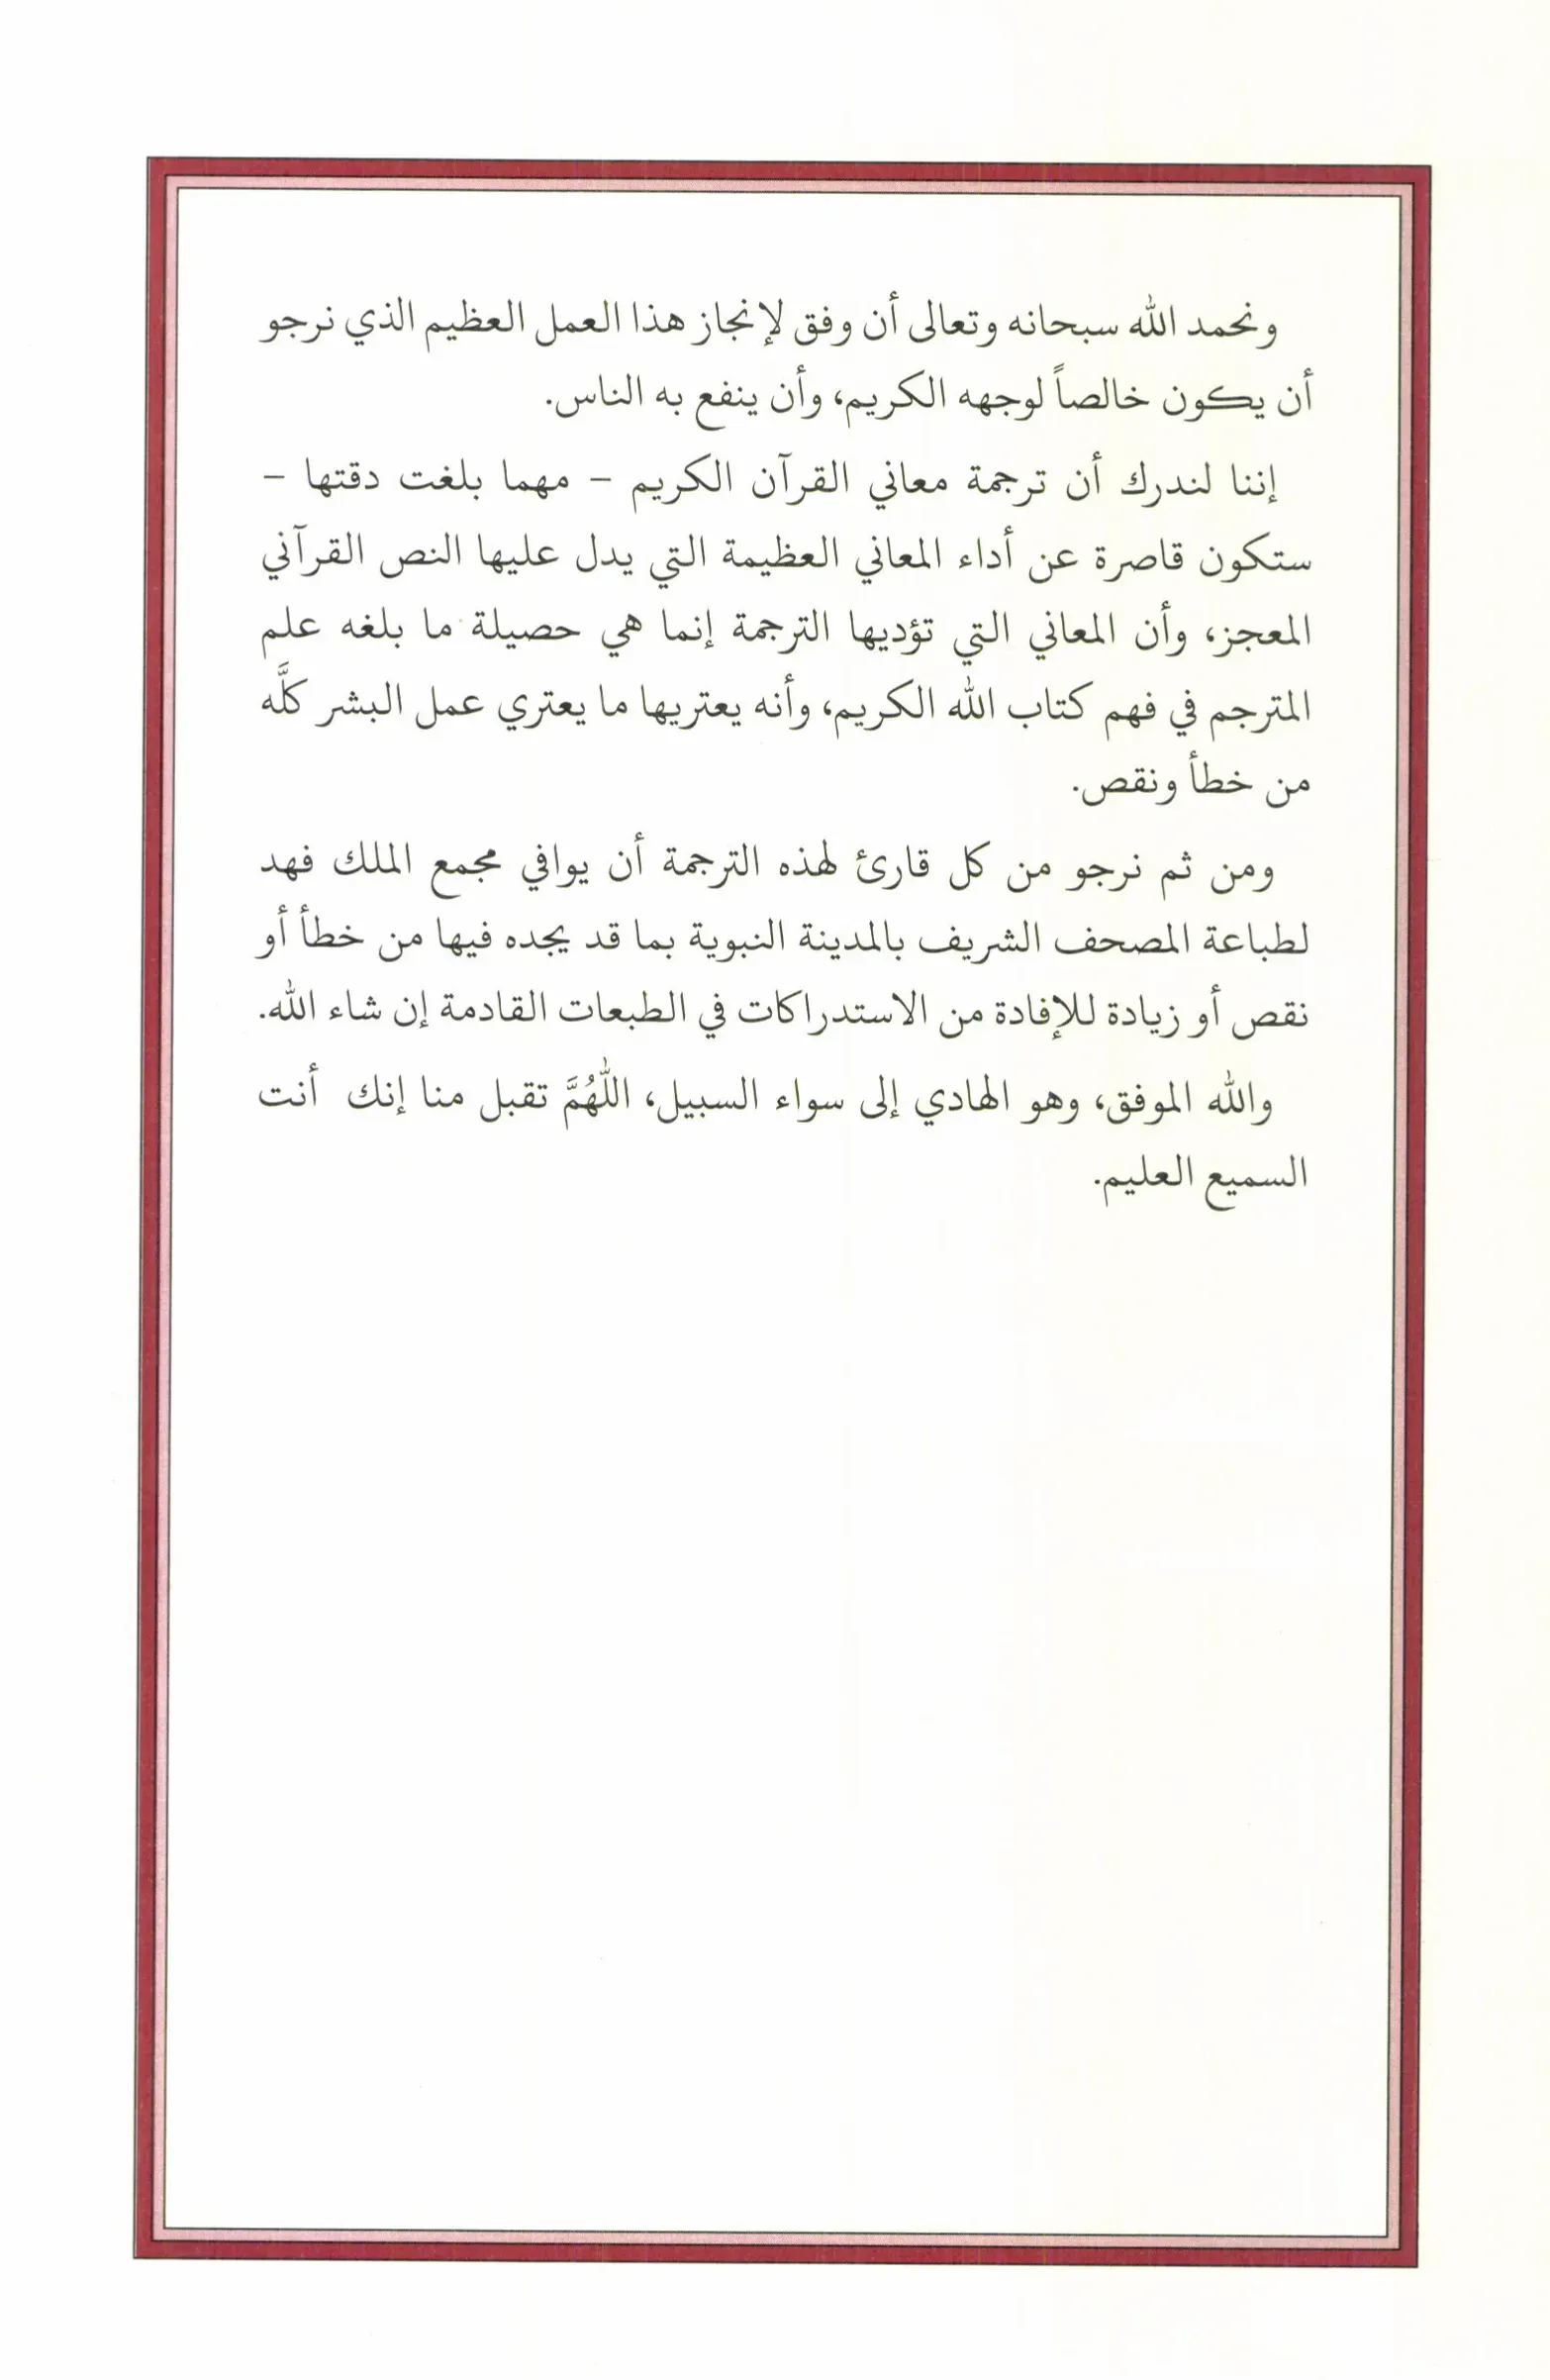 ونحمد الله سبحانه وتعالى أن وفق لإنجاز هذا العمل العظيم الذي نرجو
أن يكون خالصاً لوجهه الكريم، وأن ينفع به الناس.
إننا لندرك أن ترجمة معاني القرآن الكريم – مهما بلغت دقتها –
ستكون قاصرة عن أداء المعاني العظيمة التي يدل عليها النص القرآني
المعجز، وأن المعاني التي تؤديها الترجمة إنما هي حصيلة ما بلغه علم
المترجم في فهم كتاب الله الكريم، وأنه يعتريها ما يعتري عمل البشر كلَّه
من خطأ ونقص.
ومن ثم نرجو من كل قارئ لهذه الترجمة أن يوافي مجمع الملك فهد
لطباعة المصحف الشريف بالمدينة النبوية بما قد يجده فيها من خطأ أو
نقص أو زيادة للإفادة من الاستدراكات في الطبعات القادمة إن شاء الله.
والله الموفق، وهو الهادي إلى سواء السبيل، اللّٰهُمَّ تقبل منا إنك أنت
السميع العليم.